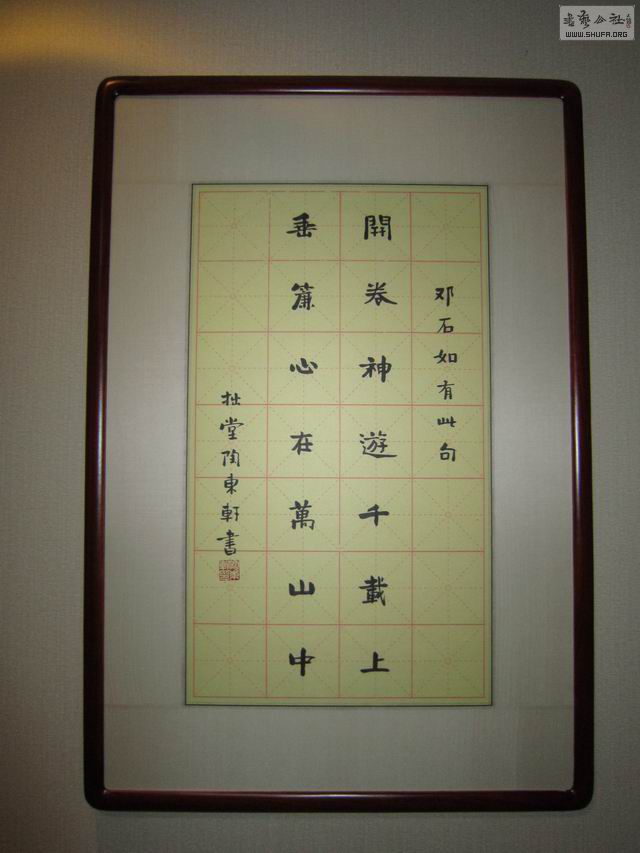 書藝公社
WWW.SHUFA.ORG
邓石如有此句
開卷神遊千載上
垂簾心在萬山中
拙堂陶東軒書